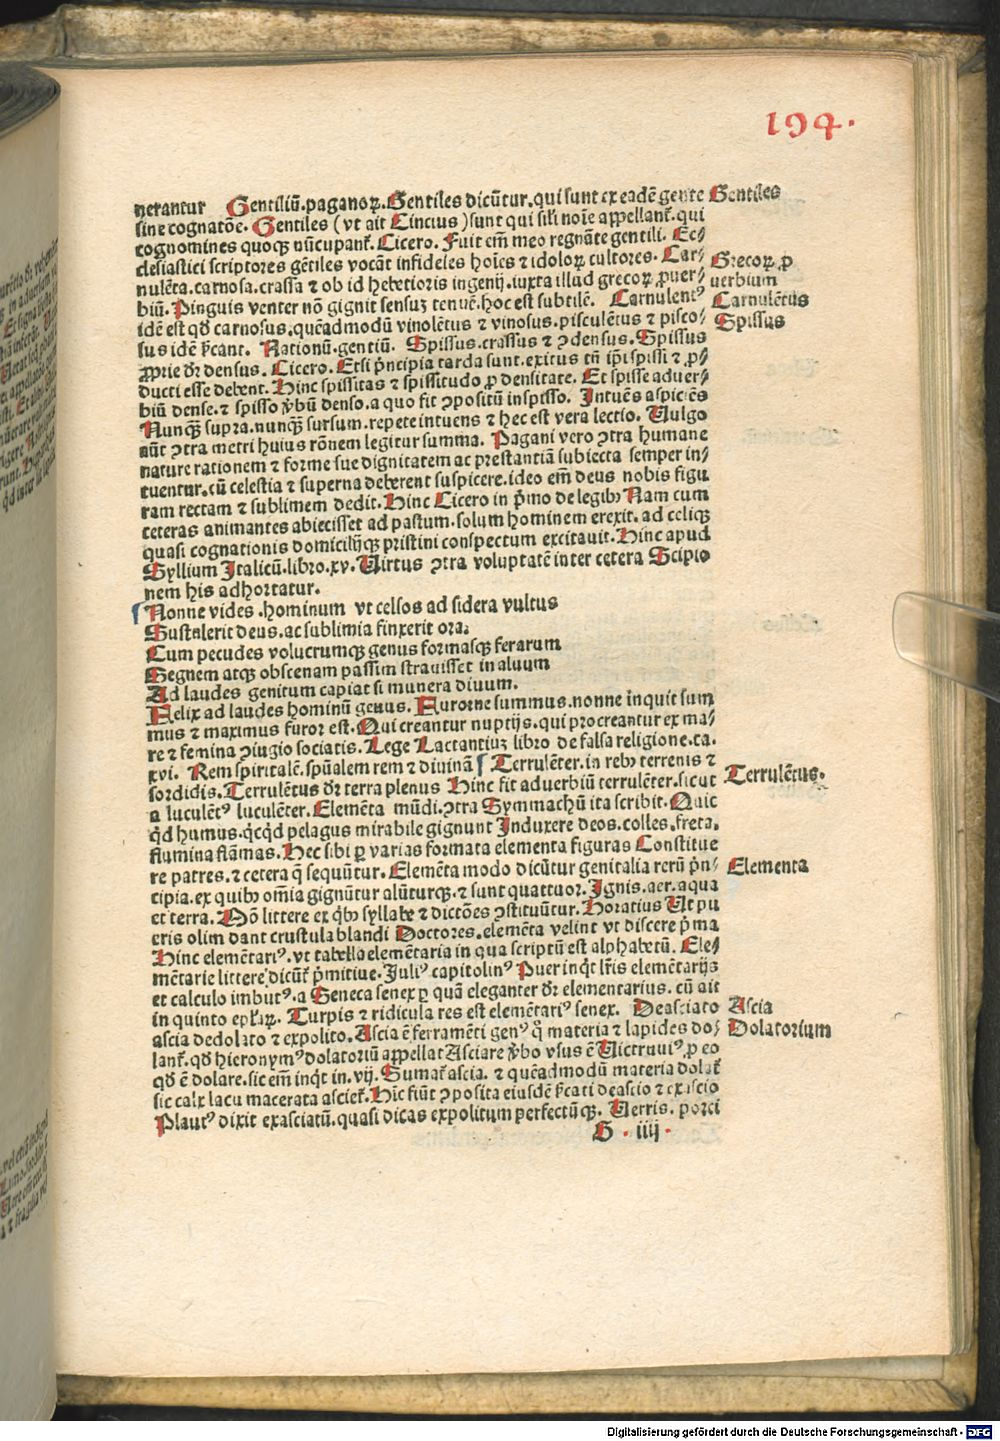 194.
nerantur Gentiliū.paganoꝝ.Gentiles dicūtur.qui sunt ex eadē gente Gentiles
sine cognatōe. Gentiles (vt ait Cincius) sunt qui sili noīe appellant᷑. qui
cognomines quoqꝫ nūcupant᷑. Cicero. Fuit em̄ meo regnāte gentili. Ec⸗
clesiastici scriptores gētiles vocāt infideles hoīes ⁊ idoloꝝ cultores. Car⸗ Grecoꝝ ꝓ
nulēta.carnosa.crassa ⁊ ob id hebetioris ingenij.iuxta illud grecoꝝ ꝓuer⸗ uerbium
biū. Pinguis venter nō gignit sensuꝫ tenuē.hoc est subtilē. Carnulentꝰ Carnulētus
idē est qd̄ carnosus.quēadmodū vinolētus ⁊ vinosus.pisculētus ⁊ pisco⸗ Spissus
sus idē sīcant. Rationū.gentiū. Spissus.crassus ⁊ ꝯdensus.Spissus
ꝓprie dr̄ densus. Cicero. Etsi pͥncipia tarda sunt.exitus tn̄ ip̄i spissi ⁊ ꝓ⸗
ducti esse debent. Hinc spissitas ⁊ spissitudo ꝓ densitate. Et spisse aduer⸗
biū dense.⁊ spisso v̄bū denso.a quo fit ꝯpositū inspisso. Intuēs aspiciēs
Nunqꝫ supra.nunqꝫ sursum.repete intuens ⁊ hec est vera lectio. Vulgo
aūt ꝯtra metri huius rōnem legitur summa. Pagani vero ꝯtra humane
nature rationem ⁊ forme sue dignitatem ac prestantiā subiecta semper in⸗
tuentur.cū celestia ⁊ superna deberent suspicere.ideo em̄ deus nobis figu
ram rectam ⁊ sublimem dedit. Hinc Cicero in pͥmo de legibꝫ Nam cum
ceteras animantes abiecisset ad pastum.solum hominem erexit.ad celiqꝫ
quasi cognationis domicilijqꝫ pristini conspectum excitauit. Hinc apud
Syllium Italicū.libro.xv. Virtus ꝯtra voluptatē inter cetera Scipio
nem his adhortatur.
Nonne vides.hominum vt celsos ad sidera vultus
Sustulerit deus.ac sublimia finxerit ora.
Cum pecudes volucrumqꝫ genus formasqꝫ ferarum
Segnem atqꝫ obscenam passim strauisset in aluum
Ad laudes genitum capiat si munera diuum.
Felix ad laudes hominū genus. Furorne summus.nonne inquit sum
mus ⁊ maximus furor est. Qui creantur nuptijs.qui procreantur ex ma⸗
re ⁊ femina ꝯiugio sociatis. Lege Lactantiuꝫ libro de falsa religione.ca.
xvi. Rem spiritalē.spūalem rem ⁊ diuinā Terrulēter.in rebꝫ terrenis ⁊
sordidis. Terrulētus dr̄ terra plenus Hinc fit aduerbiū terrulēter.sicut Terrulētus.
a luculētꝰ luculēter. Elemēta mūdi.ꝯtra Symmachū ita scribit. Quic
qd̄ humus.qcqd̄ pelagus mirabile gignunt Induxere deos.colles.freta.
flumina flāmas. Hec sibi ꝑ varias formata elementa figuras Constitue
re patres.⁊ cetera q̄ sequūtur. Elemēta modo dicūtur genitalia rerū pͥn⸗ Elementa
cipia.ex quibꝫ om̄ia gignūtur alūturqꝫ.⁊ sunt quattuor. Ignis.aer.aqua
et terra. Mō littere ex qͥbꝫ syllabe ⁊ dictōes ꝯstituūtur. Horatius Ut pu
eris olim dant crustula blandi Doctores.elemēta velint vt discere pͥma
Hinc elementariꝰ.vt tabella elemētaria in qua scriptū est alphabetū. Ele⸗
mētarie littere dicūt᷑ pͥmitiue. Juliꝰ capitolinꝰ Puer inqͥt lr̄is elemētarijs
et calculo imbutꝰ.a Seneca senex ꝑ quā eleganter dr̄ elementarius.cū ait
in quinto ep̄laꝝ. Turpis ⁊ ridicula res est elemētariꝰ senex. Deasciato Ascia
ascia dedolato ⁊ expolito. Ascia ē ferramēti genꝰ q̄ materia ⁊ lapides do⸗ Dolatorium
lant᷑.qd̄ hieronymꝰ dolatoriū appellat Asciare v̄bo vsus ē Victruuiꝰ.ꝓ eo
qd̄ ē dolare.sic em̄ inqͥt in.vij. Sumat᷑ ascia.⁊ quēadmodū materia dolat᷑
sic calx lacu macerata asciet᷑. Hīc fiūt ꝯposita eiusdē sīcati deascio ⁊ exascio
Plautꝰ dixit exasciatū.quasi dicas expolitum perfectūqꝫ. Verris. porci
G . iiij .
Digitalisierung gefördert durch die Deutsche Forschungsgemeinschaft - DFG